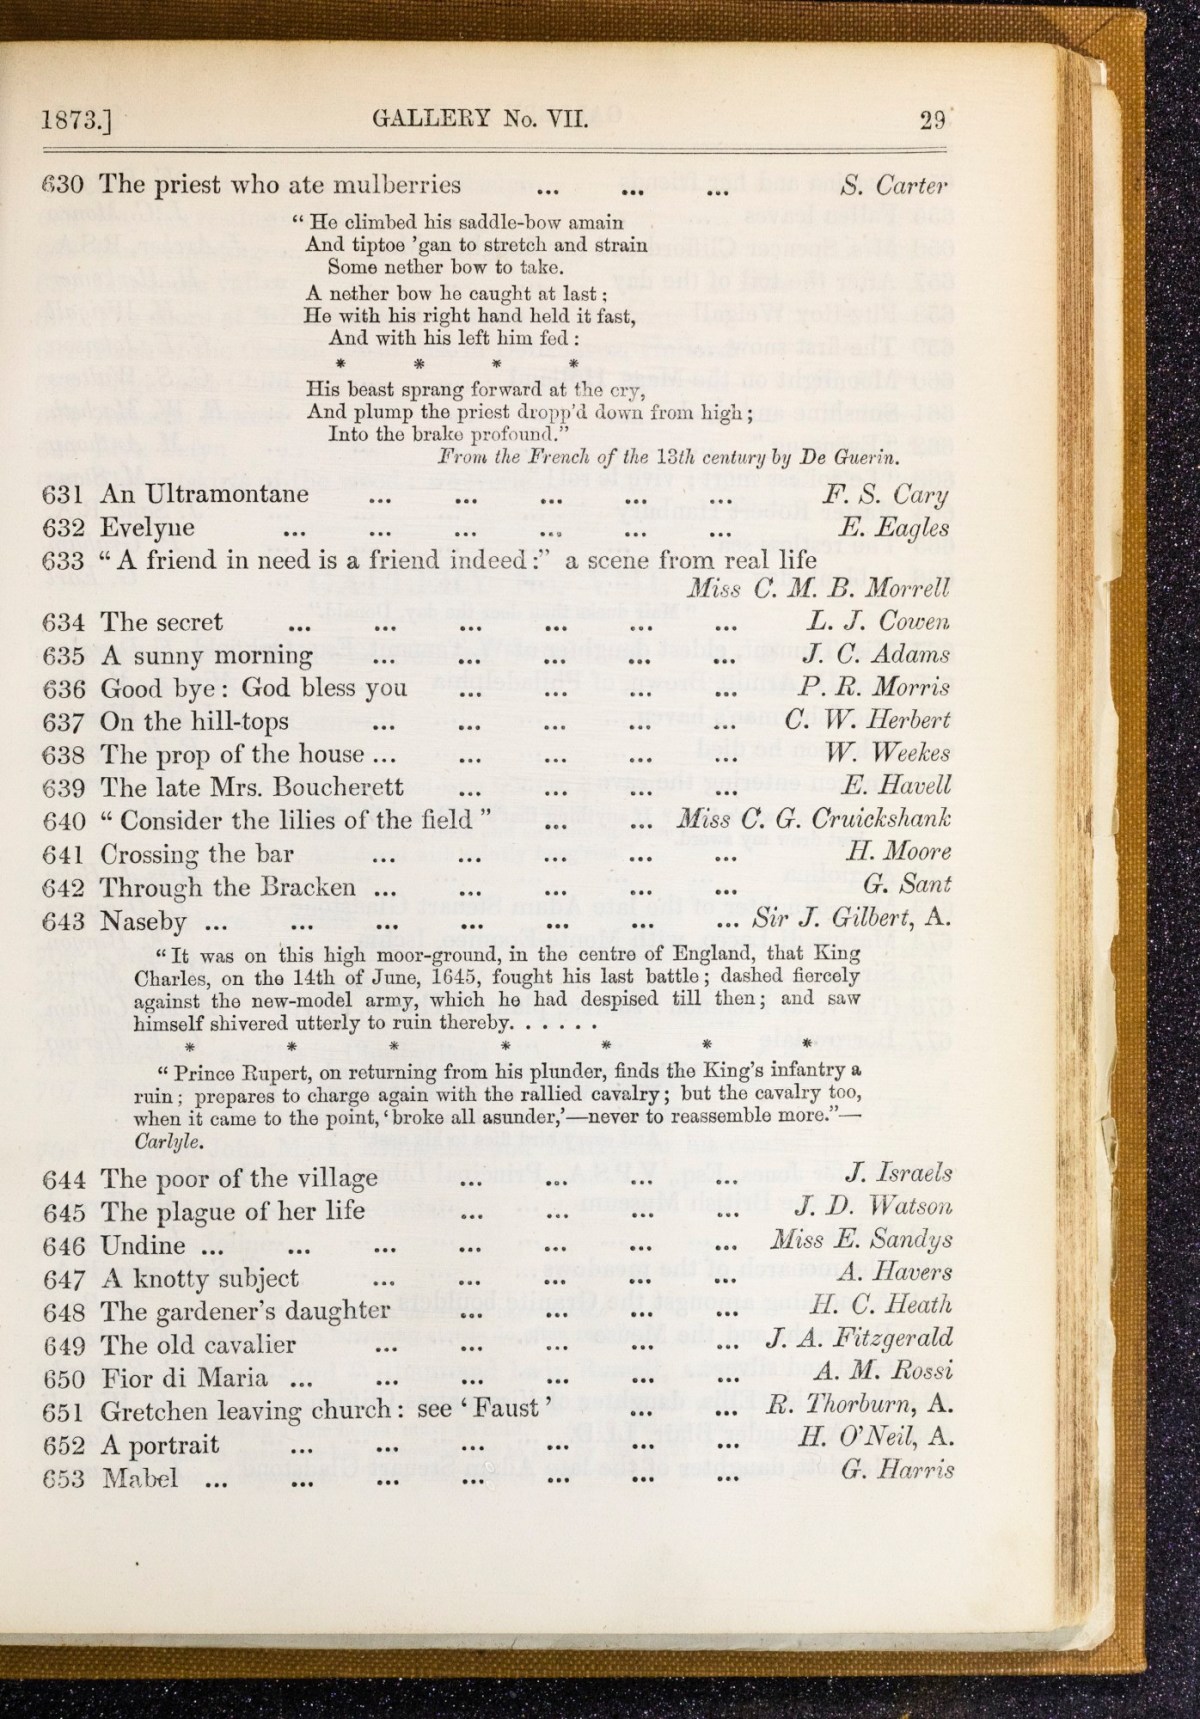 1873.] GALLERY No. VII. 29
630 The priest who ate mulberries ... ... ... S. Carter
“ He climbed his saddle-bow amain
And tiptoe ’gan to stretch and strain
Some nether bow to take.
A nether bow he caught at last ;
He with his right hand held it fast,
And with his left him fed :
* * * *
His beast sprang forward at the cry,
And plump the priest dropp’d down from high ;
Into the brake profound.”
From the French of the 13th century by De Guerin.
631 An Ultramontane ... ... ... ... ... F. S. Cary
632 Evelyne ... ... ... ... ... ... E. Eagles
633 “ A friend in need is a friend indeed :” a scene from real life
Miss C. M. B. Morrell
634 The secret ... ... ... ... ... ... L. J. Cowen
635 A sunny morning ... ... ... ... ... J. C. Adams
636 Good bye : God bless you ... ... ... ... P. R. Morris
637 On the hill-tops ... ... ... ... ... C. W. Herbert
638 The prop of the house ... ... ... ... ... W. Weekes
639 The late Mrs. Boucherett ... ... ... ... E. Havell
640 “ Consider the lilies of the field ” ... ... Miss C. G. Cruickshank
641 Crossing the bar ... ... ... ... ... H. Moore
642 Through the Bracken ... ... ... ... ... G. Sant
643 Naseby ... ... ... ... ... ... ... Sir J. Gilbert, A.
“ It was on this high moor-ground, in the centre of England, that King
Charles, on the 14th of June, 1645, fought his last battle ; dashed fiercely
against the new-model army, which he had despised till then ; and saw
himself shivered utterly to ruin thereby. . . . . .
* * * * * * *
“ Prince Rupert, on returning from his plunder, finds the King’s infantry a
ruin ; prepares to charge again with the rallied cavalry ; but the cavalry too,
when it came to the point, ‘ broke all asunder,’—never to reassemble more.”—
Carlyle.
644 The poor of the village ... ... ... ... J. Israels
645 The plague of her life ... ... ... ... J. D. Watson
646 Undine ... ... ... ... ... ... ... Miss E. Sandys
647 A knotty subject ... ... ... ... ... A. Havers
648 The gardener’s daughter ... ... ... ... H. C. Heath
649 The old cavalier ... ... ... ... ... J. A. Fitzgerald
650 Fior di Maria ... ... ... ... ... ... A. M. Rossi
651 Gretchen leaving church : see ‘ Faust ’ ... ... R. Thorburn, A.
652 A portrait ... ... ... ... ... ... H. O’Neil, A.
653 Mabel ... ... ... ... ... ... ... G. Harris